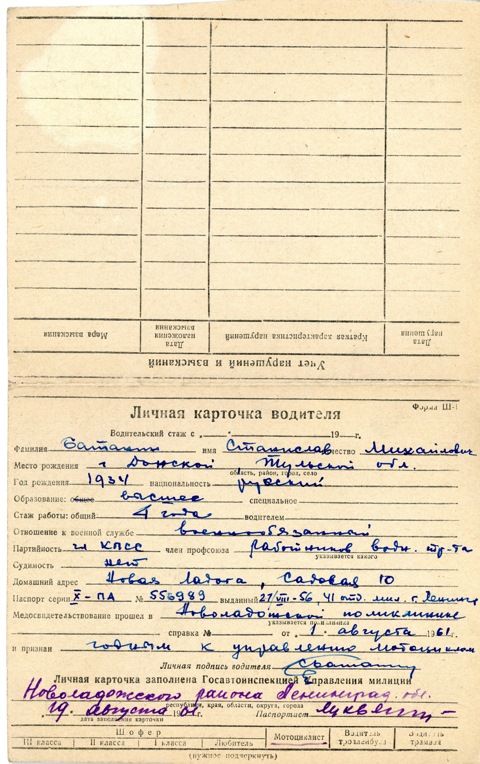 Мера взыскания
Дата наложения взыскания
Краткая характеристика нарушений
Дата нарушения
Учет нарушений и взысканий
Форма Ш-1
Личная карточка водителя
Водительский стаж с „ “ 19 г.
Фамилия имя Станислав отчество Михайлович
Место рождения г. Донской Тульской обл.
область, район, город, село
Год рождения 1934 национальность русский
Образование: общее высшее специальное
Стаж работы: общий 4 года водителем
Отношение к военной службе военнообязанный
Партийность чл КПСС член профсоюза работников водн. тр-та
указывается какого
Судимость нет
Домашний адрес Новая Ладога, Садовая 10
Паспорт серии X-ПА № 556989 выданный 27/VIII-56, 41 отд. мил. г. Ленингр
Медосвидетельствование прошел в Новоладожской поликлинике
указывается поликлиника
справка № от „1“ августа 1961
и признан годным к управлению мотоциклом
Личная подпись водителя
Личная карточка заполнена Госавтоинспекцией Управления милиции
Новоладожского района Ленинград. обл.
республики, края, области, округа, города
„19“ Августа 1961 г. Паспортист
дата заполнения карточки
Шофер
III класса II класса I класса Любитель Мотоциклист Водитель троллейбуса Водитель трамвая
(нужное подчеркнуть)